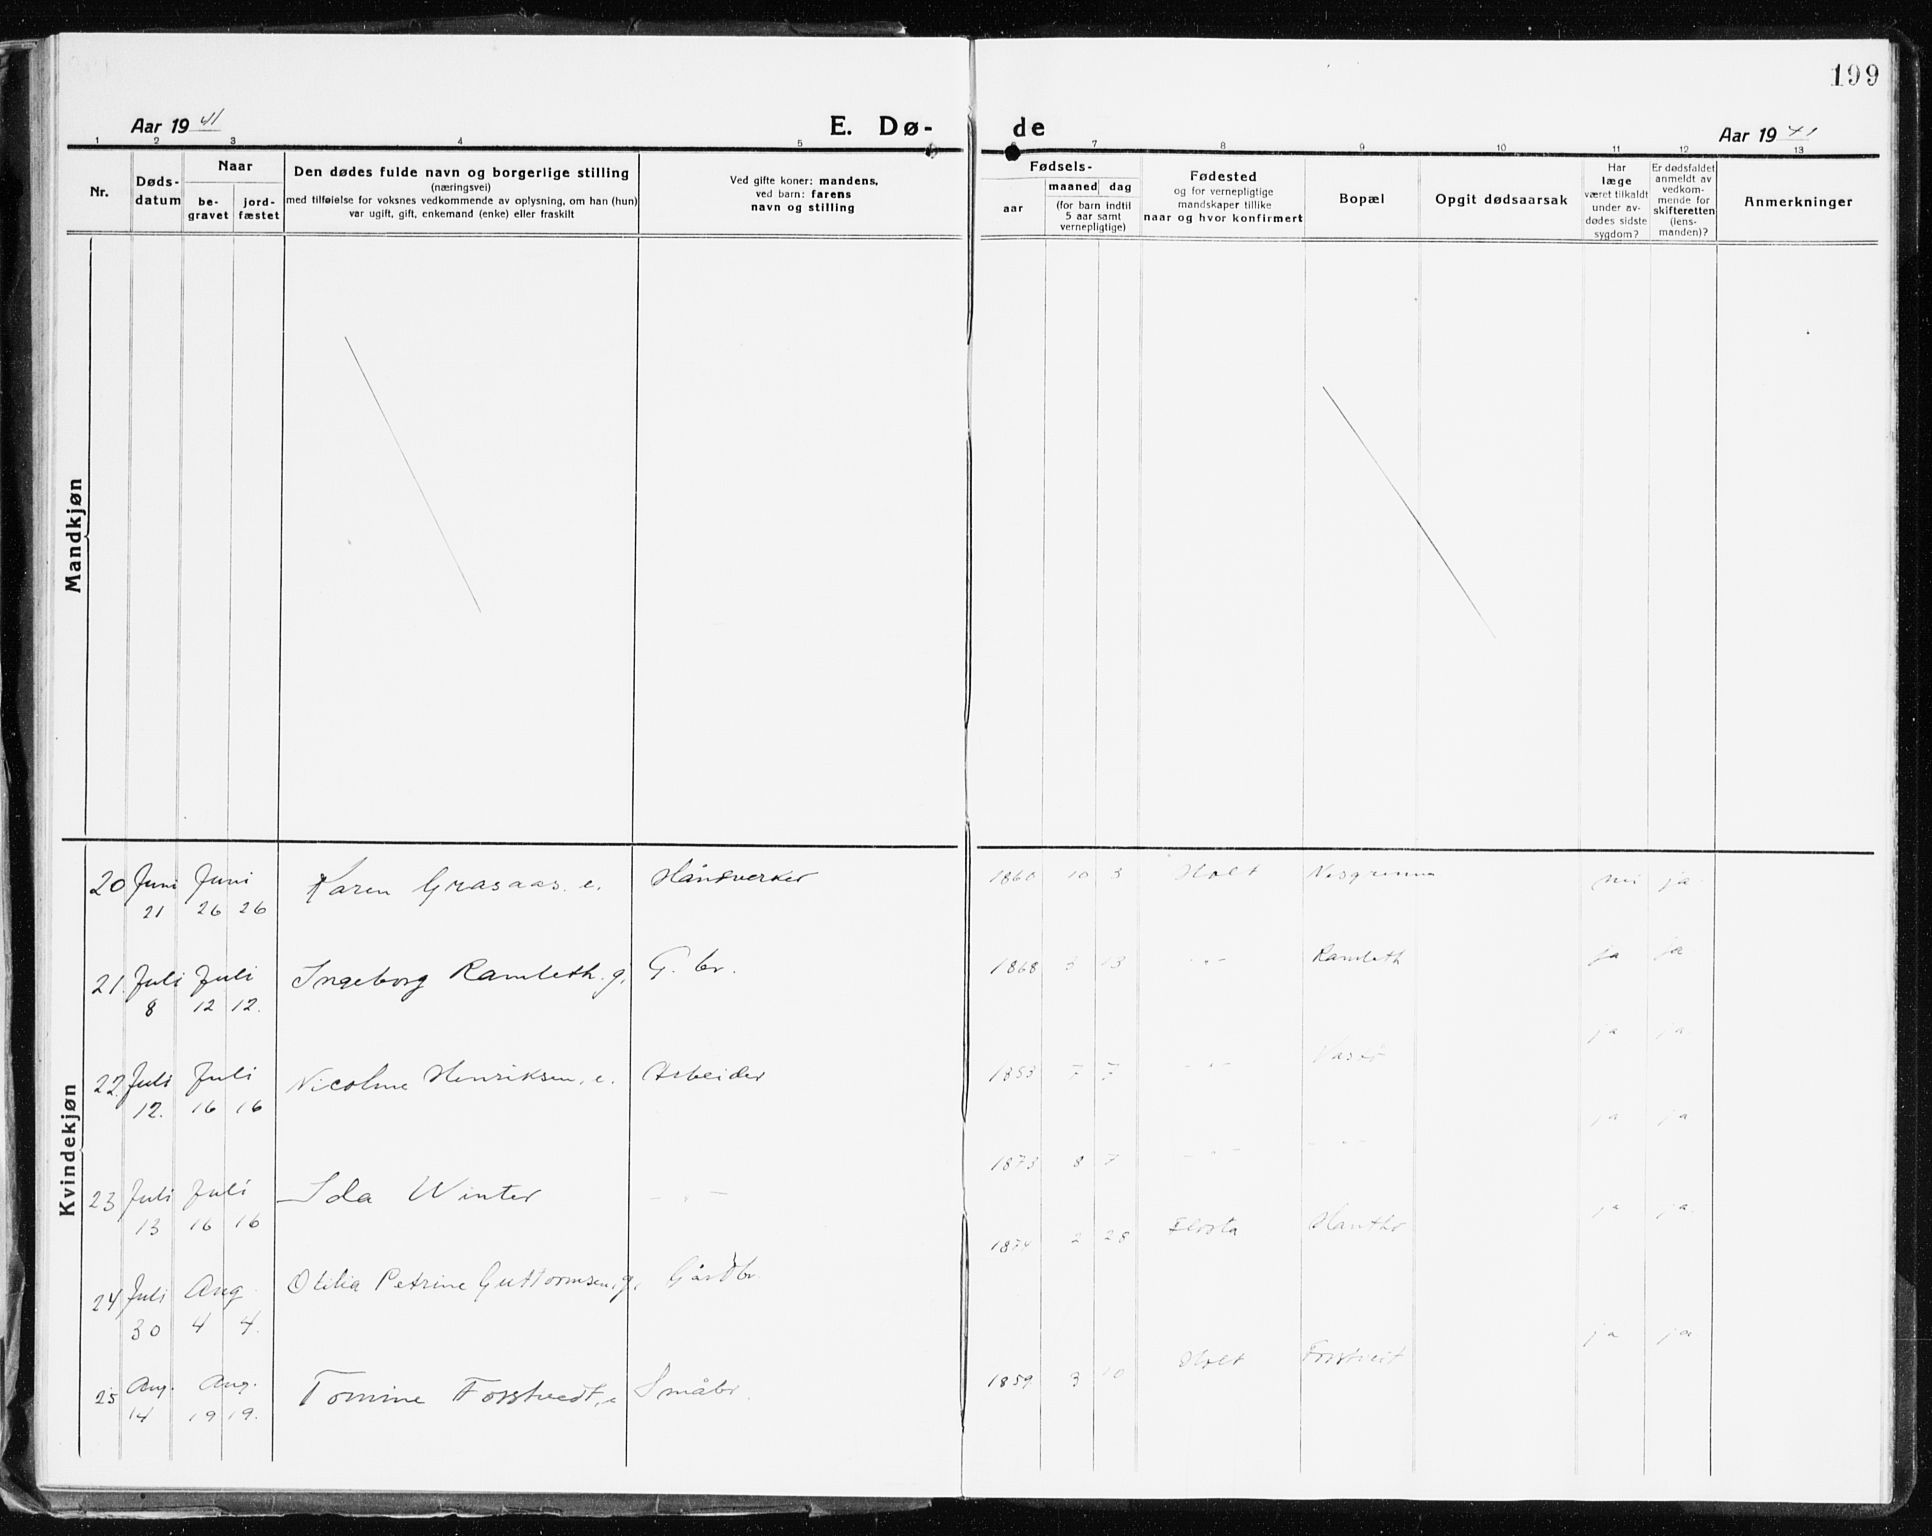 199
Aar 1941 E. Dø- de Aar 1941
1 2 3 4 5 6 7 8 9 10 11 12 13
Nr.
Døds-
datum
Naar
be-
gravet
jord-
fæstet
Den dødes fulde navn og borgerlige stilling
(næringsvei)
med tilføielse for voksnes vedkommende av oplysning, om han (hun)
var ugift, gift, enkemand (enke) eller fraskilt
Ved gifte koner: mandens,
ved barn: farens
navn og stilling
Fødsels-
aar
maaned dag
(for barn indtil
5 aar samt
vernepligtige)
Fødested
og for vernepligtige
mandskaper tillike
naar og hvor konfirmert
Bopæl
Opgit dødsaarsak
Har
læge
været tilkaldt
under av-
dødes sidste
sygdom?
Er dødsfaldet
anmeldt av
vedkom-
mende for
skifteretten
(lens-
manden)?
Anmerkninger
Mandkjøn
Kvindekjøn
20 Juni Juni Karen Grasaas. e. Håndverker 1860 10 3 Holt Nesgrenna nei ja.
21 26 26
21. Juli Juli Ingeborg Ramleth. g. G. br. 1868 3 13 - " - Ramleth ja ja
8 12 12.
22. Juli Juli Nicoline Henriksen, e. Arbeider 1853 7 7 - " - ja ja
12. 16 16
23 Juli Juli Ida Winter - " - 1873 8 7 - " - - " - ja ja
13 16 16
24 Juli Aug. Otilia Petrine Guttormsen, g. Gårdbr. 1874 2 28 Flosta ja ja.
30 4 4.
25 Aug. Aug. Tomine Forstvedt, e Småbr. 1859 3 10 Holt Forstvedt ja ja
14 19 19.